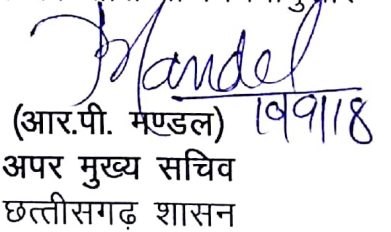 Mandel
10/9/18
(आर.पी. मण्डल)
अपर मुख्य सचिव
छत्तीसगढ़ शासन